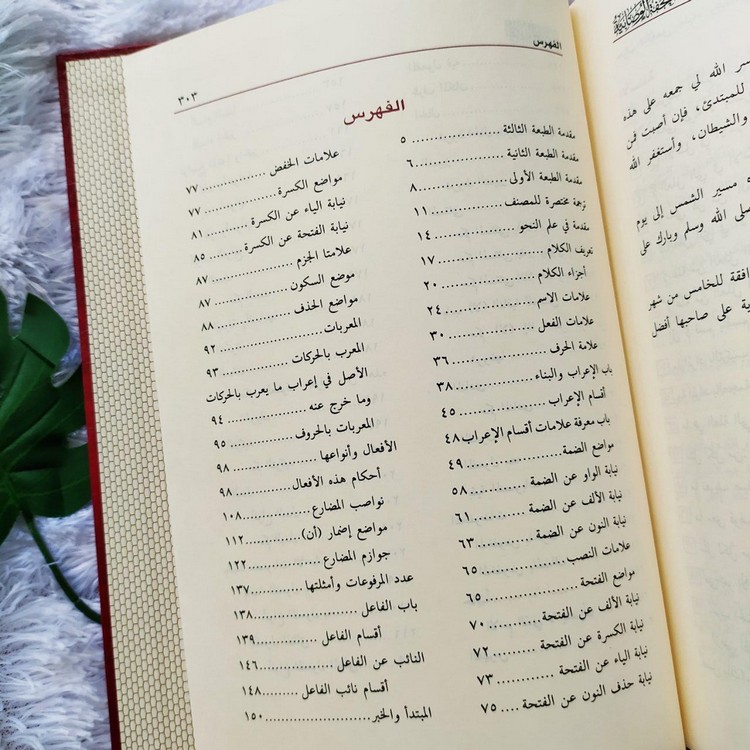 الفهرس
٣٠٣
الفهرس
مقدمة الطبعة الثالثة ............ ٥
مقدمة الطبعة الثانية ............ ٦
مقدمة الطبعة الأولى ............ ٨
ترجمة مختصرة للمصنف ........ ١١
مقدمة في علم النحو ............ ١٤
تعريف الكلام ............ ١٧
أجزاء الكلام ............ ٢٠
علامات الاسم ............ ٢٤
علامات الفعل ............ ٣٠
علامة الحرف ............ ٣٦
باب الإعراب والبناء ............ ٣٨
أقسام الإعراب ............ ٤٥
باب معرفة علامات أقسام الإعراب ٤٨
مواضع الضمة ............ ٤٩
نيابة الواو عن الضمة ............ ٥٨
نيابة الألف عن الضمة ............ ٦١
نيابة النون عن الضمة ............ ٦٣
علامات النصب ............ ٦٥
مواضع الفتحة ............ ٦٥
نيابة الألف عن الفتحة ............ ٧٠
نيابة الكسرة عن الفتحة ............ ٧٢
نيابة الياء عن الفتحة ............ ٧٣
نيابة حذف النون عن الفتحة .... ٧٥
علامات الخفض ............ ٧٧
مواضع الكسرة ............ ٧٧
نيابة الياء عن الكسرة ............ ٨١
نيابة الفتحة عن الكسرة ........ ٨٥
علامتا الجزم ............ ٨٧
موضع السكون ............ ٨٧
مواضع الحذف ............ ٨٨
المعربات ............ ٩٢
المعرب بالحركات ............ ٩٣
الأصل في إعراب ما يعرب بالحركات
وما خرج عنه ............ ٩٤
المعربات بالحروف ............ ٩٥
الأفعال وأنواعها ............ ٩٨
أحكام هذه الأفعال ............ ٩٨
نواصب المضارع ............ ١٠٨
مواضع إضمار (أن) ............ ١١٢
جوازم المضارع ............ ١٢٢
عدد المرفوعات وأمثلتها ........ ١٣٧
باب الفاعل ............ ١٣٨
أقسام الفاعل ............ ١٣٩
النائب عن الفاعل ............ ١٤٦
أقسام نائب الفاعل ............ ١٤٨
المبتدأ والخبر ............ ١٥٠
الله لي جمعه على هذه
للمبتدئ، فإن أصبت فمن
والشيطان، وأستغفر الله
مسير الشمس إلى يوم
الله وسلم وبارك على
للخامس من شهر
على صاحبها أفضل